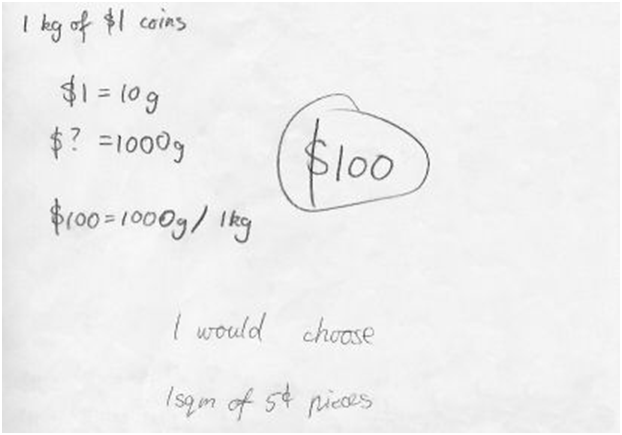 1 kg of $1 coins
$1 = 10g
$? = 1000g
$100
$100 = 1000g / 1kg
I would choose
1sqm of 5¢ pieces